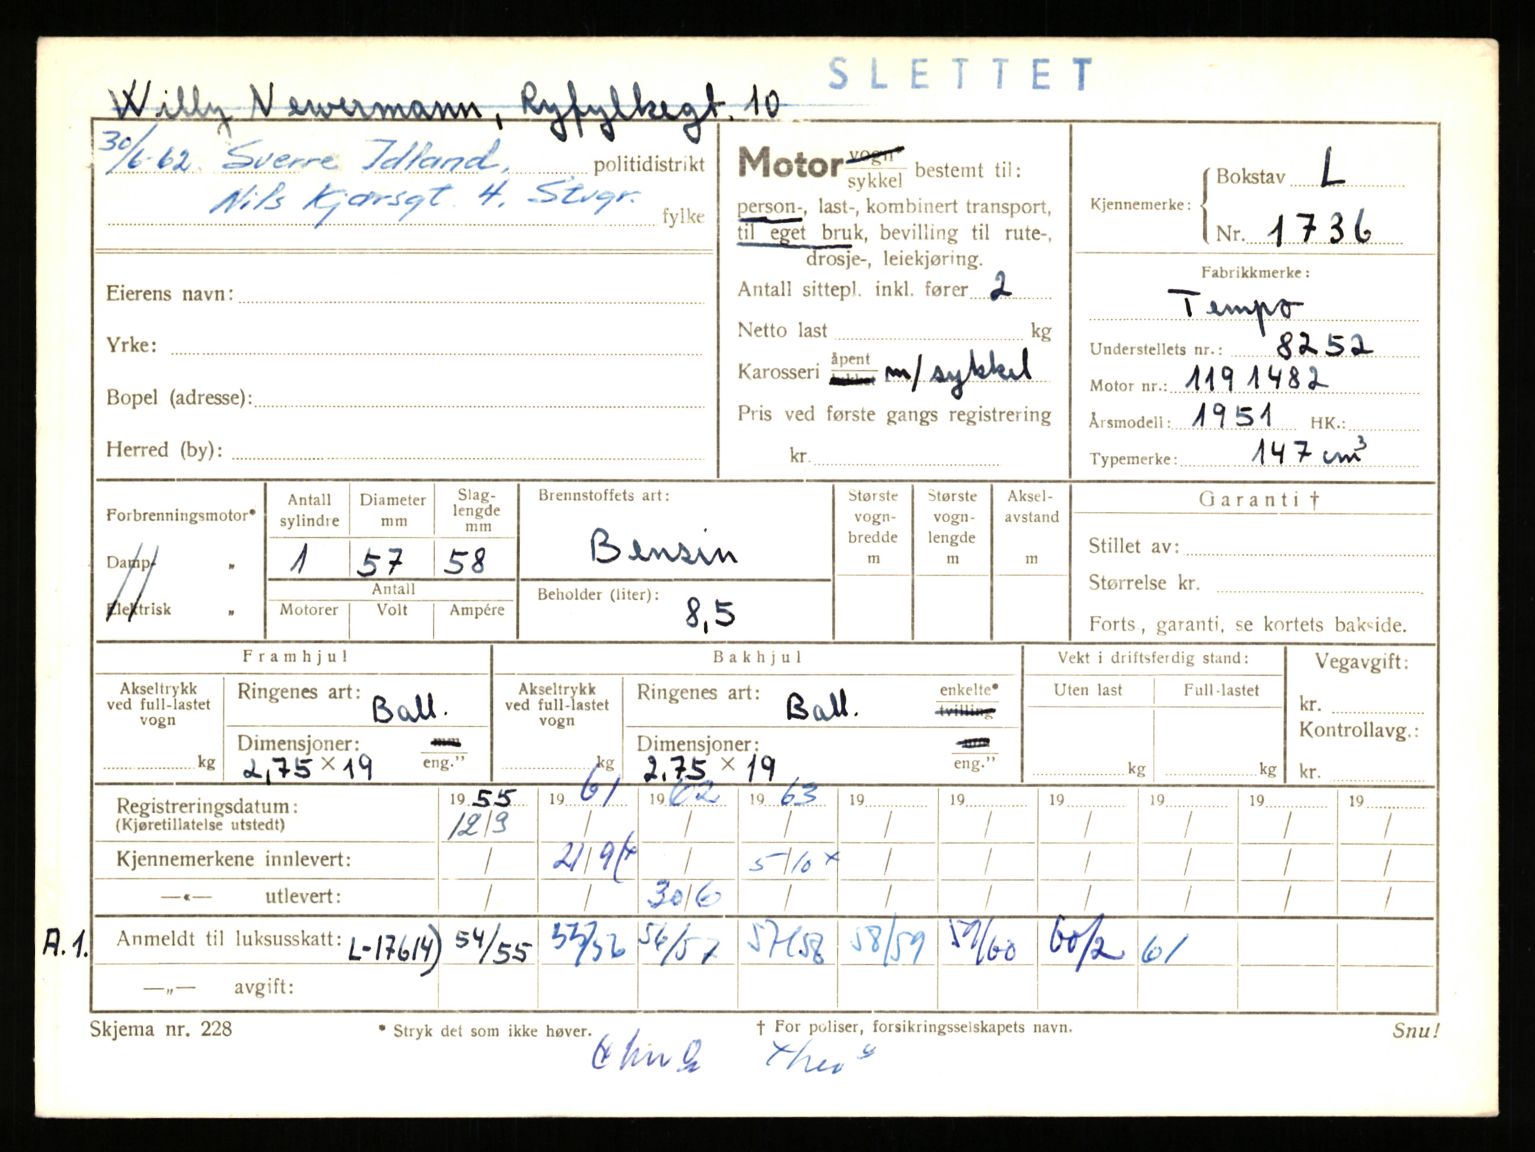 SLETTET
Willy Newermann, Ryfylkegt. 10
30/6-62. Sverre Idland, politidistrikt
Nils Kjærsgt. 4. Stvgr. fylke
Eierens navn:
Yrke:
Bopel (adresse):
Herred (by):
Motor vogn* sykkel bestemt til:
person-, last-, kombinert transport,
til eget bruk, bevilling til rute-,
drosje-, leiekjøring.
Antall sittepl. inkl. fører 2
Netto last kg
Karosseri åpent m/sykkel
Pris ved første gangs registrering
kr.
Kjennemerke: Bokstav L
Nr. 1736
Fabrikkmerke:
Tempo
Understellets nr.: 8252
Motor nr.: 1191482
Årsmodell: 1951 HK.:
Typemerke: 147 cm³
Forbrenningsmotor*
Damp- „
Elektrisk „
Antall sylindre 1
Diameter mm 57
Slaglengde mm 58
Antall
Motorer Volt Ampére
Brennstoffets art:
Bensin
Beholder (liter):
8,5
Største vogn-bredde m
Største vogn-lengde m
Aksel-avstand m
Garanti †
Stillet av:
Størrelse kr.
Forts., garanti, se kortets bakside.
Framhjul
Akseltrykk ved full-lastet vogn kg
Ringenes art: Ball.
Dimensjoner: eng."
2,75 × 19
Bakhjul
Akseltrykk ved full-lastet vogn kg
Ringenes art: Ball. enkelte* tvilling
Dimensjoner: eng."
2.75 × 19
Vekt i driftsferdig stand:
Uten last Full-lastet
kg kg
Vegavgift:
kr.
Kontrollavg.:
kr.
Registreringsdatum: 1955 1961 1962 1963 19 19 19 19 19 19
(Kjøretillatelse utstedt) 12/3 / / / / / / / / /
Kjennemerkene innlevert: / 21/9 x / 5/10 x / / / / / /
—«— utlevert: / / 30/6 / / / / / / /
A.1. Anmeldt til luksusskatt: L-17614) 54/55 55/56 56/57 57/58 58/59 59/60 60/2 61
—„— avgift:
Skjema nr. 228 * Stryk det som ikke høver. † For poliser, forsikringsselskapets navn. Snu!